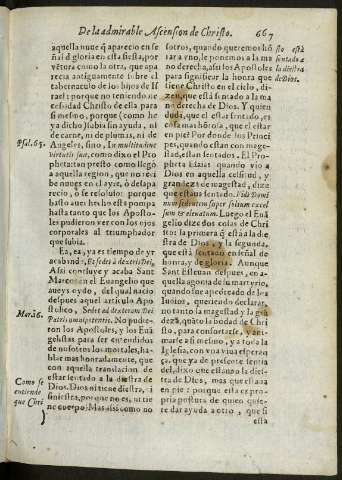 De la admirable Ascension de Christo. 667
aquella nuue q̃ aparecio en se
ñal d gloria en esta fiesta, por
vẽtura como la otra, que apa
recia antiguamente sobre el
tabernaculo de los hijos de Is
rael: porque no teniendo ne
cessidad Christo de ella para
si mesmo, porque (como he
ya dicho) subia sin ayuda, ni
de carne, ni de plumas, ni de
Psal. 63.
Angeles, sino, In multitudine
virtutis suæ, como dixo el Pro
pheta: tan presto como llegò
a aquella region, que no reci
be nuues en el ayre, ò desapa
recio, ò se resoluio: porque
hasta auer hecho esta pompa
hasta tanto que los Aposto-
les pudieron ver los ojos
corporales al triumphador
que subia.
Ea, ea, ya es tiempo de yr
acabando, Et sedet à dextris Dei,
Assi concluye y acaba Sant
Marcos en el Euangelio que
aueys oydo, del qual nacio
despues aquel articulo Apos
tolico, Sedet ad dexteram Dei
Mar. 16.
Patris omnipotentis. No pudie-
ron los Apostoles, y los Euã
gelistas para ser entendidos
de nosotros los mortales, ha-
blar mas honradamente, que
con aquella translacion de
Como se
entiende
que Chri
estar sentado a la diestra de
Dios. Dios ni tiene diestra, ni
siniestra, porque no es, ni tie
ne cuerpo: Mas assi como no
sotros, quando queremos hõ
rar a vno, le ponemos a la ma
no derecha, assi los Apostoles
para significar la honra que
tiene Christo en el cielo, di-
zen, que està sentado a la ma
no derecha de Dios. Y quien
duda, que el estar sentado, es
cosa mas honrosa, que el estar
en pie? Por donde los Princi
pes, quando estan con mages-
tad, estan sentados. El Pro-
pheta Esaias quando vio a
Dios en aquella celsitud, y
grandeza de magestad, dize
que estaua sentado. Vidi Domi
num sedentem super solium excel
sum & eleuatum. Luego el Euã
gelio dize dos cosas de Chris
to: la primera q̃ està a la dies
tra de Dios, y la segunda,
que està sentado en señal de
honra, y de gloria. Aunque
Sant Esteuan despues, en a-
quella agonia de su martyrio,
quando fue apedreado de los
Iudios, queriendo declarar,
no tanto la magestad y la grã
deza, quãto la bodad de Chris
to, para confortarse, y ani-
marse a si mesmo, y a toda la
Iglesia, con vna viua esperan
ça, que ya de presente tenia
del, dixo que estaua a la dies-
tra de Dios, mas que estaua
en pie: porque esta es pro-
pria postura de quien quie-
re dar ayuda a otro, que si
esta
sto està
sentado a
la diestra
de Dios.